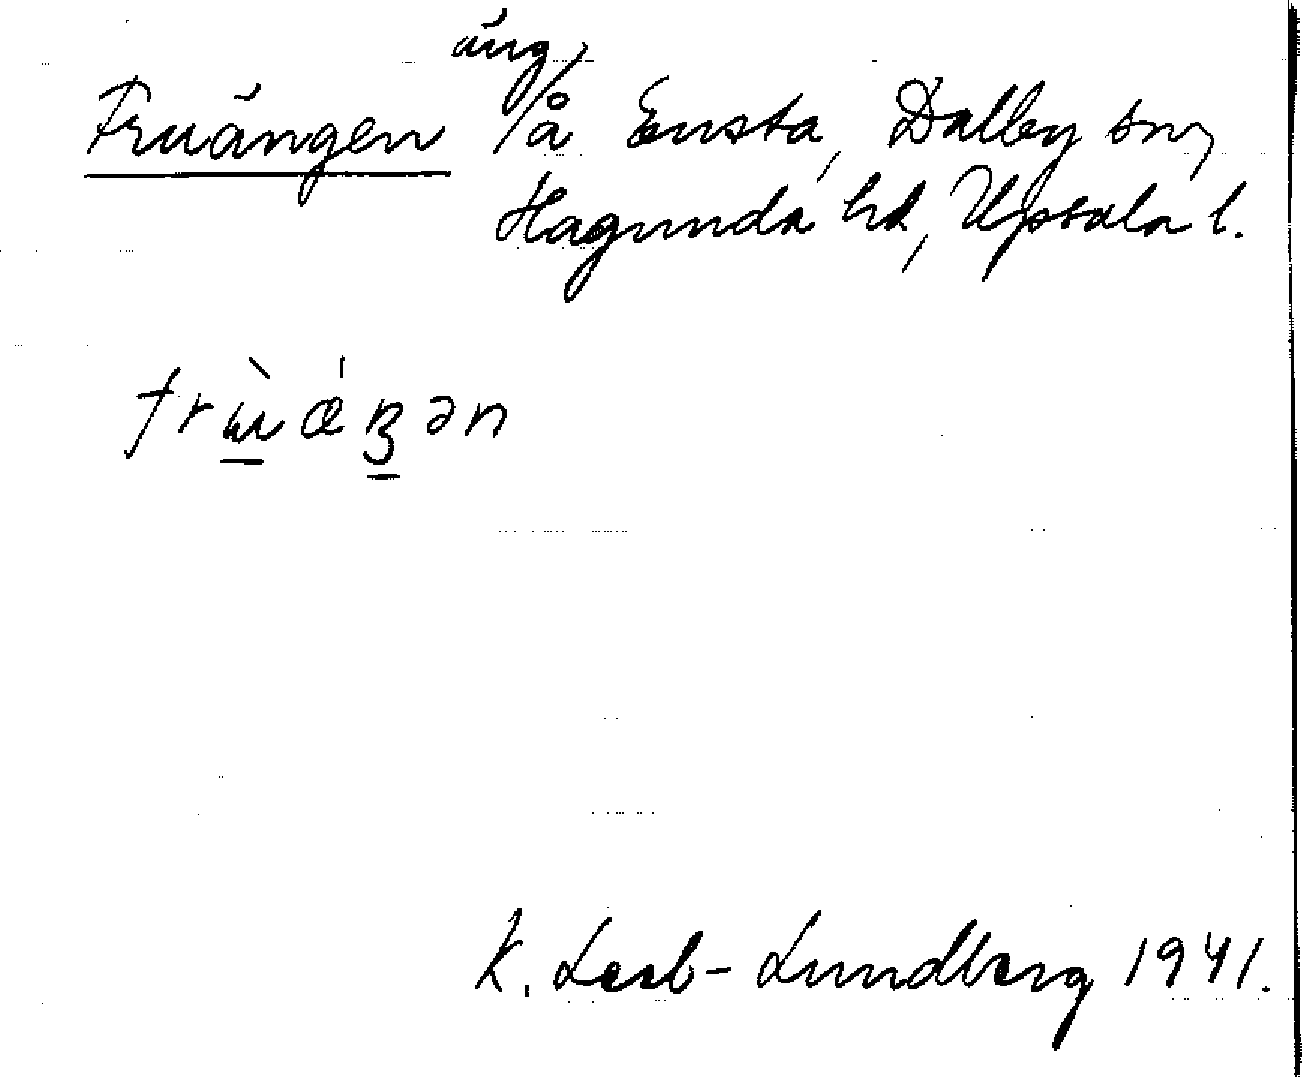 Fruängen äng, å Ensta, Dalby sn,
Hagunda hd, Upsala l.
frɯ̀æŋən
K. Leeb-Lundberg 1941.